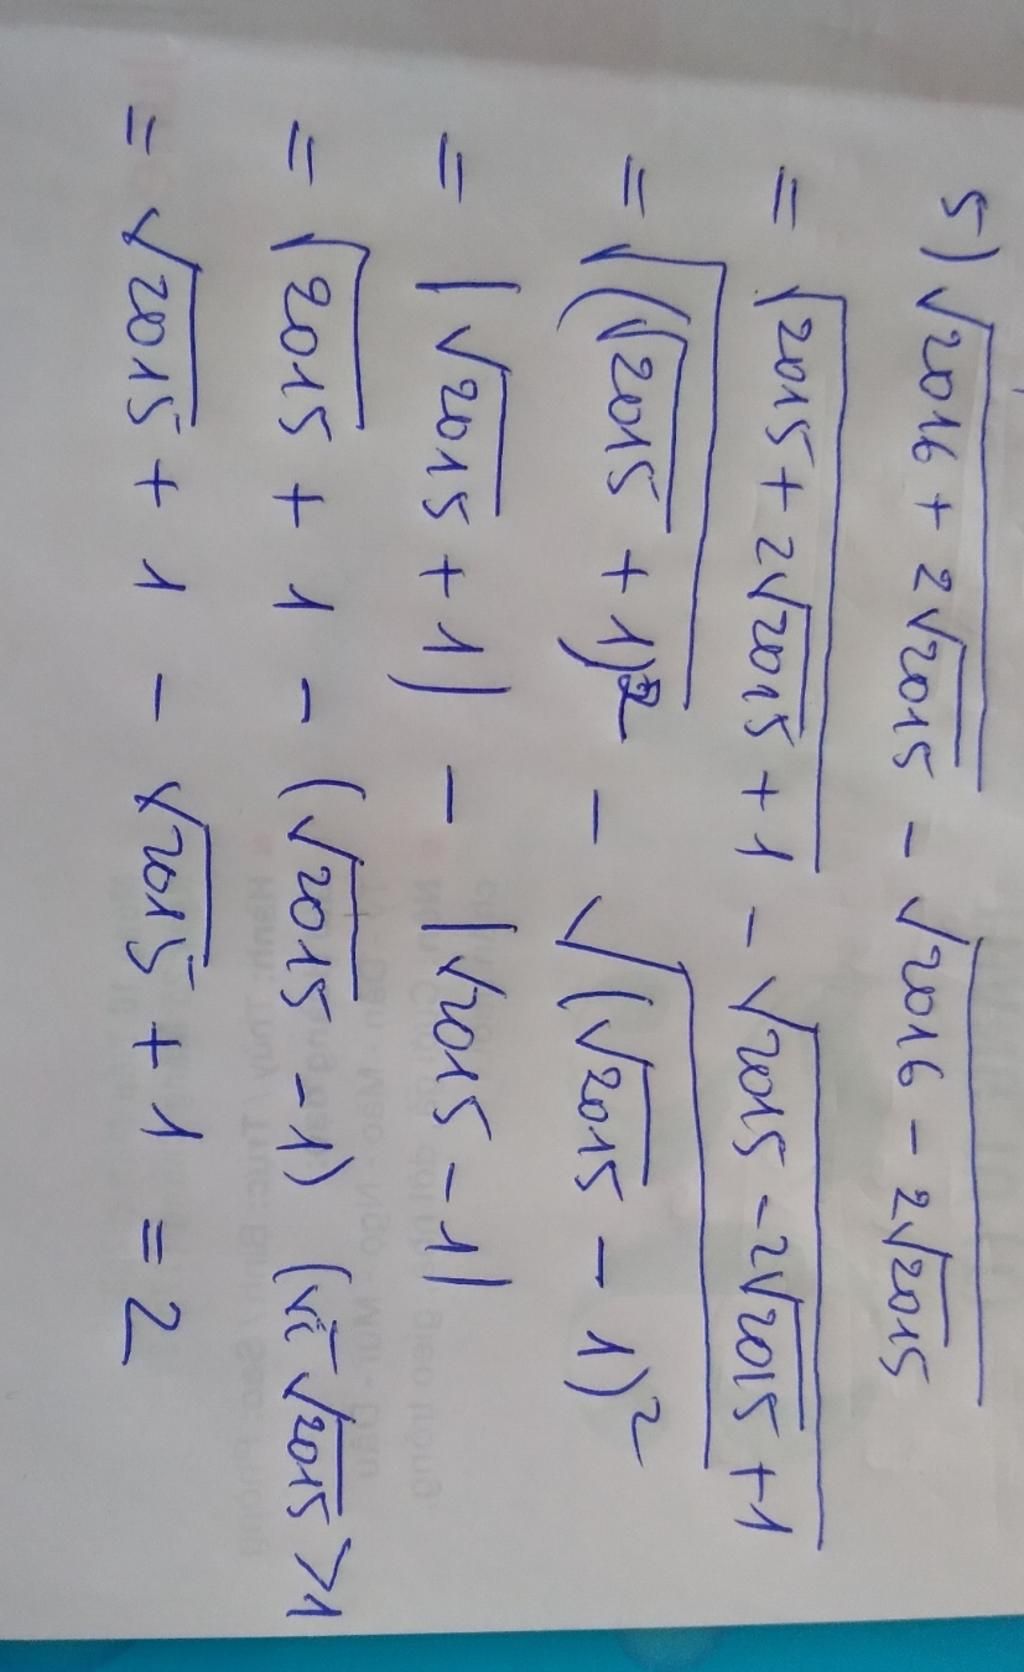 5) √(2016 + 2√2015) - √(2016 - 2√2015)
= √(2015 + 2√2015 + 1) - √(2015 - 2√2015 + 1)
= √((√2015 + 1)²) - √((√2015 - 1)²)
= |√2015 + 1| - |√2015 - 1|
= √2015 + 1 - (√2015 - 1) (vì √2015 > 1
= √2015 + 1 - √2015 + 1 = 2